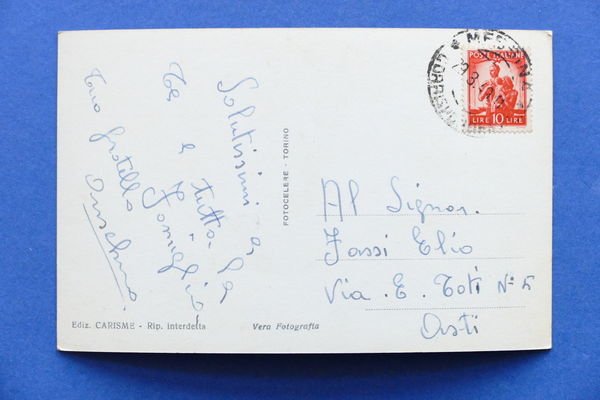 Salutissimi a
te e tutta la
Famiglia
Tuo fratello
Anselmo.
FOTOCELERE - TORINO
MESSINA
CORRISP
POSTE ITALIANE
LIRE 10 LIRE
Al Signor.
Fassi Elio
Via. E. Toti N° 5
Asti
Ediz. CARISME - Rip. interdetta
Vera Fotografia